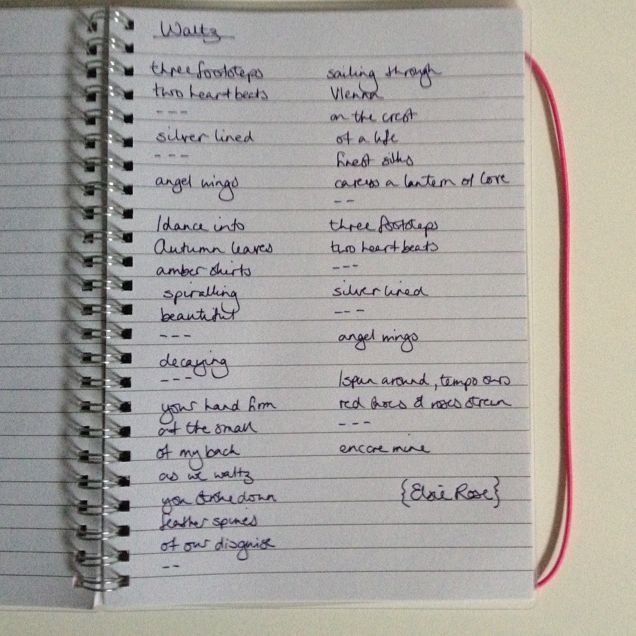 Waltz
three footsteps
two heart beats
---
silver lined
---
angel wings
I dance into
Autumn leaves
amber skirts
spiralling
beautiful
---
decaying
---
your hand firm
at the small
of my back
as we waltz
you stroke down
feather spines
of our disguise
--
sailing through
Vienna
on the crest
of a life
finest silks
caress a lantern of love
--
three footsteps
two heart beats
---
silver lined
---
angel wings
I spun around, tempo ours
red shoes & roses strewn
---
encore mine
{Elsie Rose}